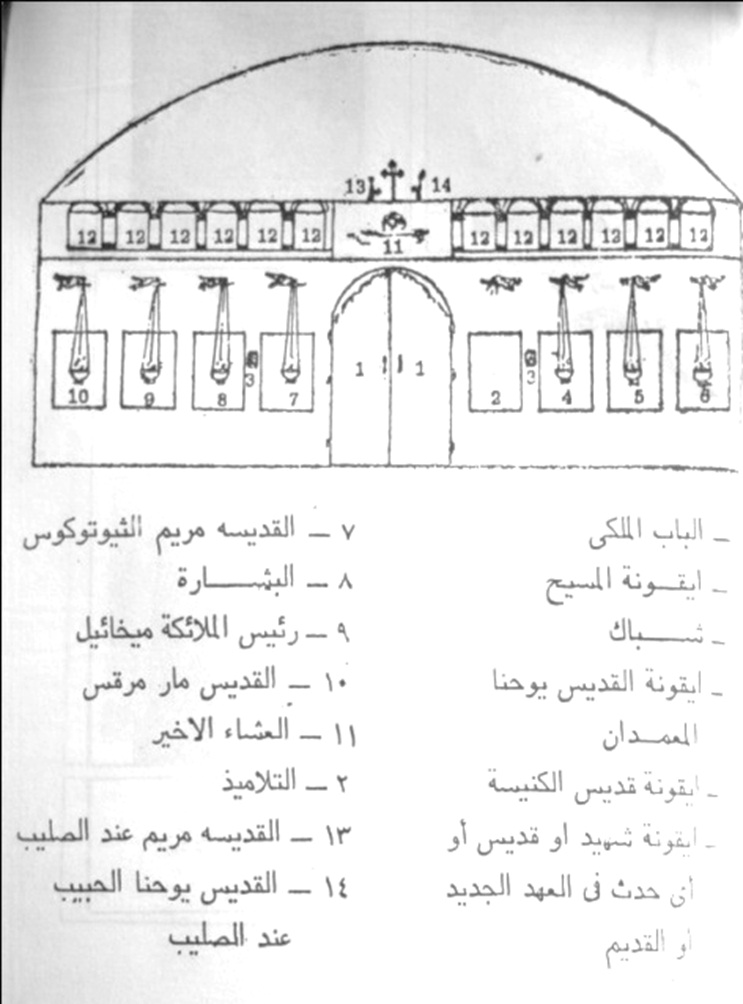 13 14
12 12 12 12 12 12 12 12 12 12 12 12
11
10 9 8 3 7 1 1 2 3 4 5 6
ــ الباب الملكى
ــ ايقــونة المسيح
ــ شـــــباك
ــ ايقونة القديس يوحنا
المعمــدان
ــ ايقونة قديس الكنيسة
ــ ايقونة شهيد او قديس أو
أى حدث فى العهد الجديد
او القديم
٧ ــ القديسه مريم الثيوتوكوس
٨ ــ البشـــــارة
٩ ــ رئيس الملائكة ميخائيل
١٠ ــ القديس مار مرقس
١١ ــ العشاء الاخير
٢ ــ التلاميذ
١٣ ــ القديسه مريم عند الصليب
١٤ ــ القديس يوحنا الحبيب
عند الصليب